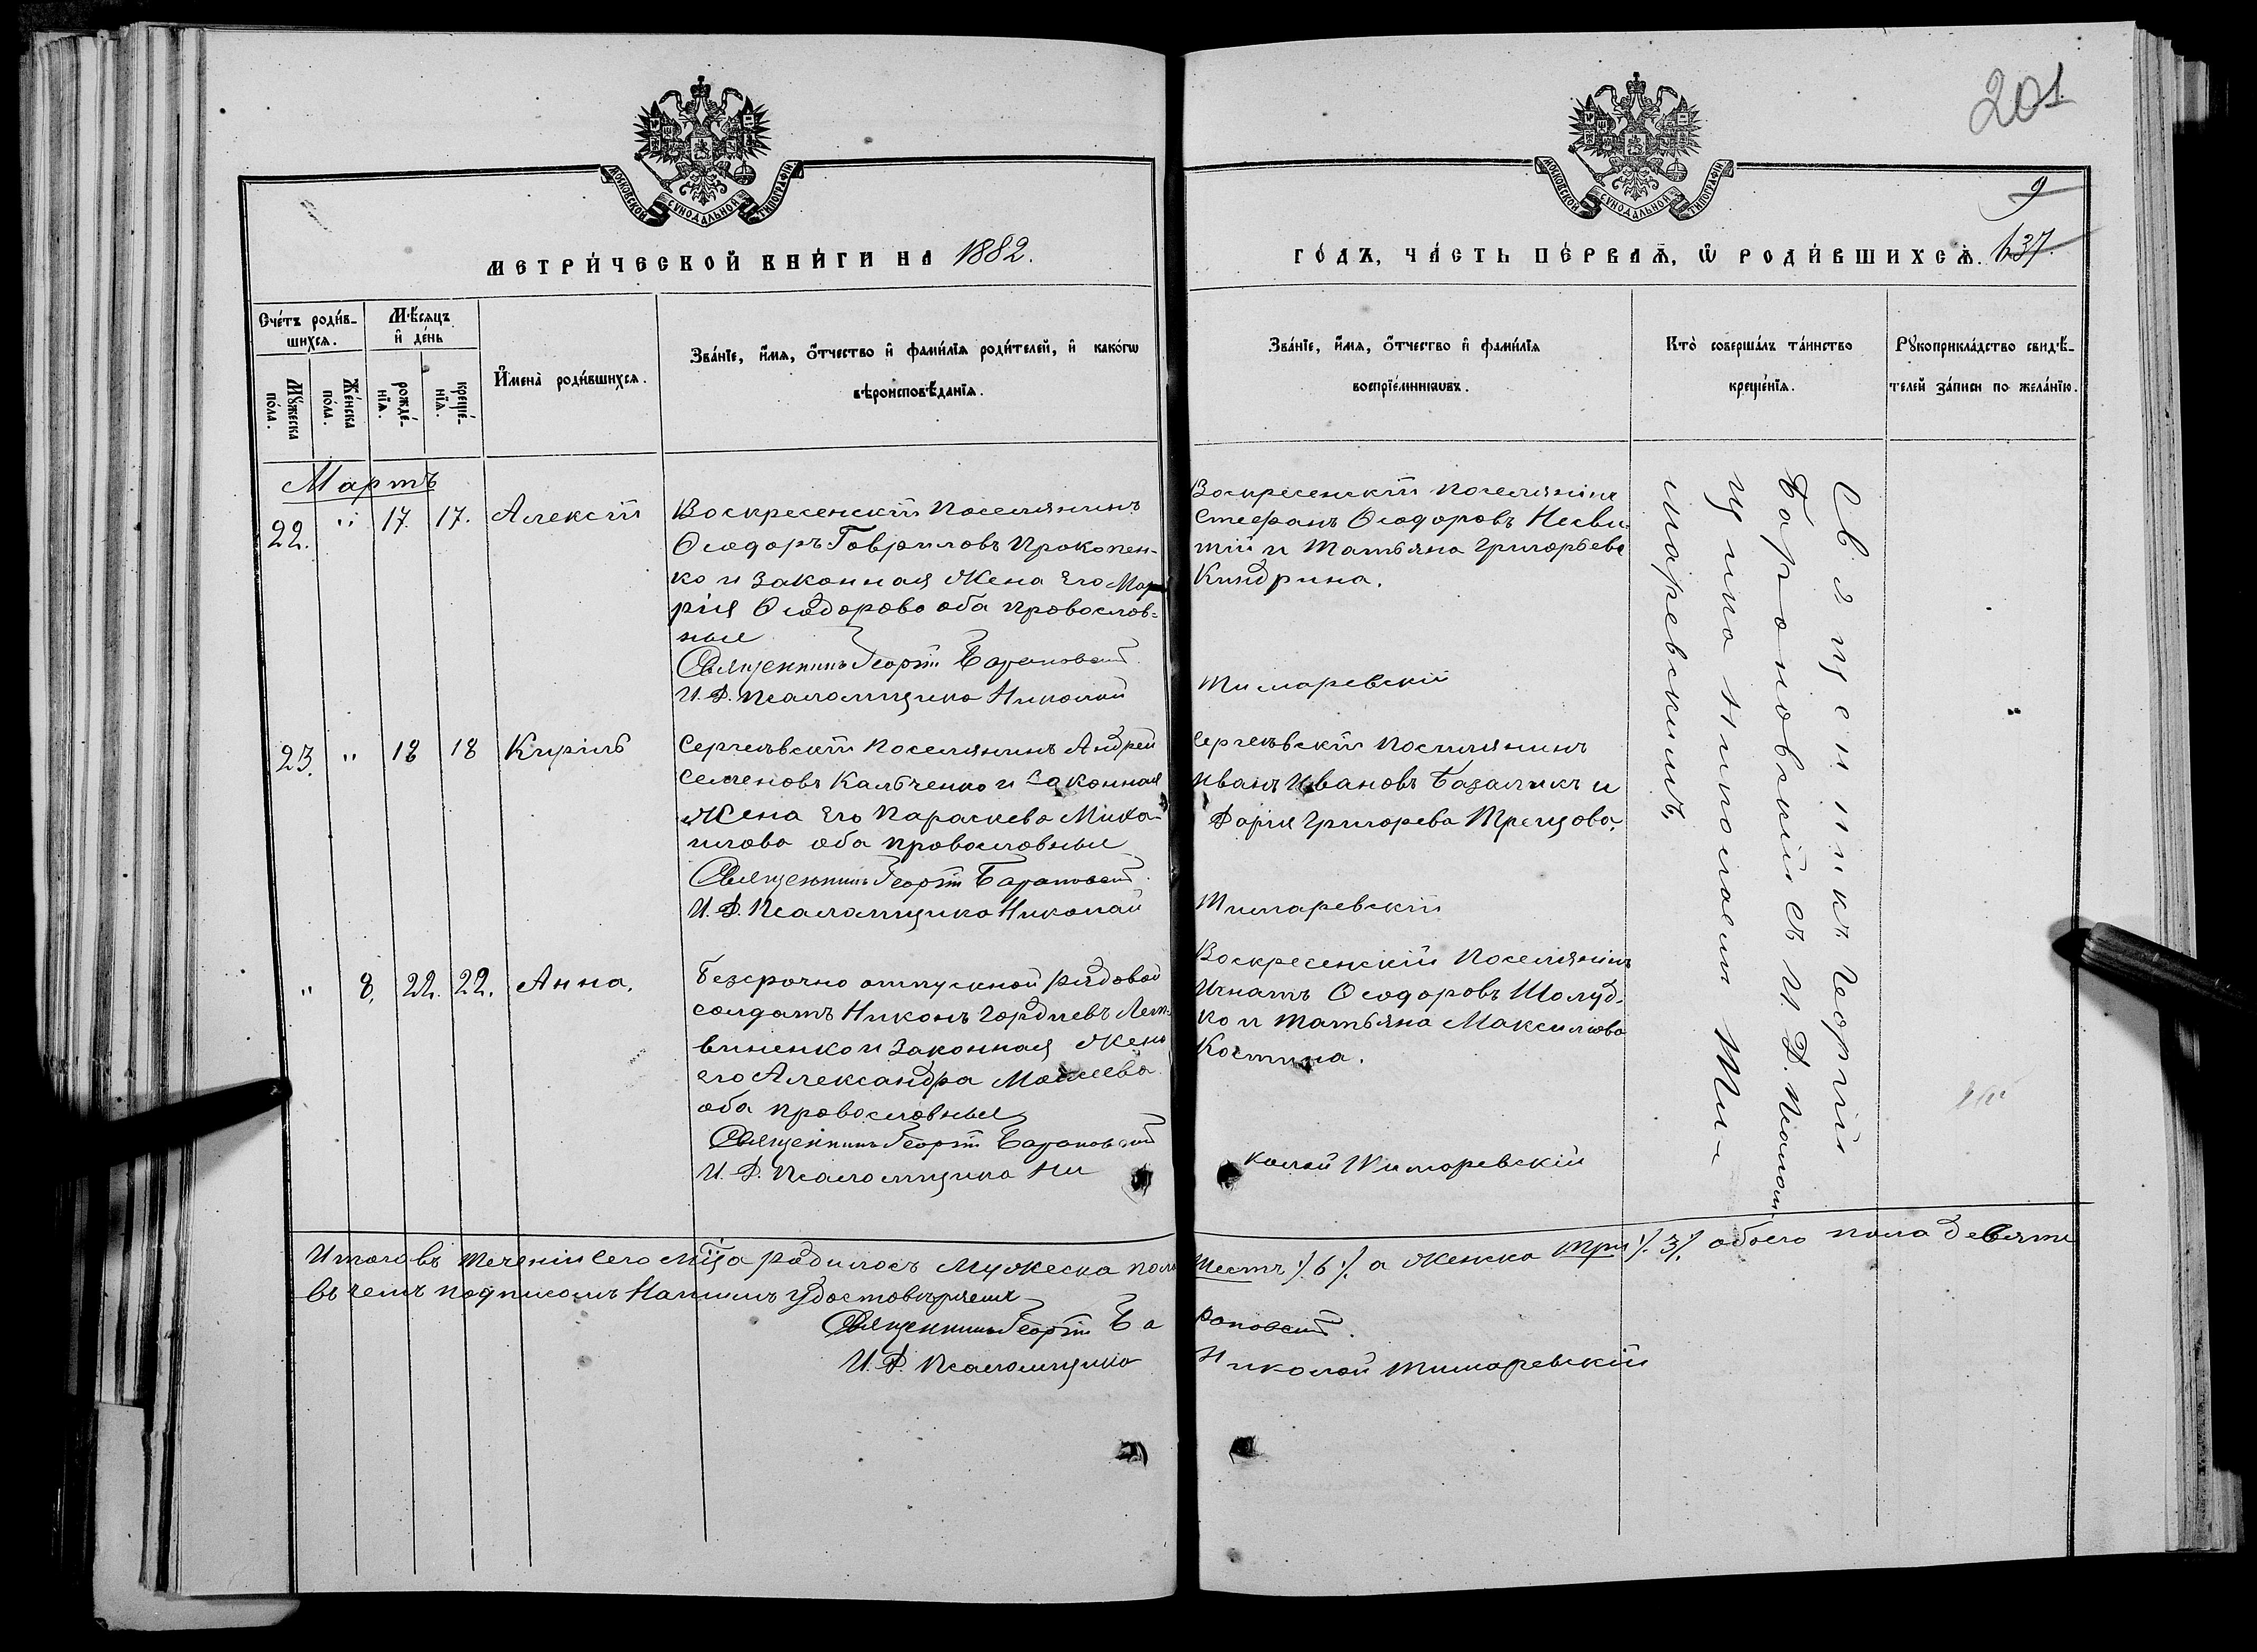 201
МОСКОВСКОЙ СУНОДАЛЬНОЙ ТИПОГРАФІИ
МОСКОВСКОЙ СУНОДАЛЬНОЙ ТИПОГРАФІИ
9
МЕТРИ́ЧЕСКОЙ КНИ́ГИ НА 1882.
ГО́ДЪ, ЧА́СТЬ ПЕ́РВАѦ, Ѿ РОДИ́ВШИХСѦ. 637.
Счéтъ роди́в-
шихсѧ.
Мѣ́сѧцъ
и҆ де́нь
Мꙋ́жеска
по́ла.
Же́нска
по́ла.
рожде́-
нїѧ.
креще́-
нїѧ.
И҆мена̀ роди́вшихсѧ.
Зва́нїе, и҆́мѧ, ѻ҆́тчество и҆ фами́лїѧ роди́телей, и҆ како́гѡ
вѣроисповѣ́данїѧ.
Зва́нїе, и҆́мѧ, ѻ҆́тчество и҆ фами́лїѧ
воспрїе́мникѡвъ.
Кто̀ соверша́лъ та́инство
креще́нїѧ.
Рꙋкоприкла́дство свидѣ́-
телей за́писи по жела́нїю.
Мартъ
22. " 17. 17. Алексій
Воскресенскій Поселянинъ
Ѳеодоръ Гавриловъ Прокопен-
ко и законная жена его Ма
рія Ѳеодорова оба православ-
ные
Священникъ Георгій Барановскій
И. Д. Псаломщика Николай
Воскресенскій Поселянинъ
Стефанъ Ѳеодоровъ Несви-
тій и Татьяна Григорьева
Киндрина.
Тимаревскій
23. " 18 18 Кирилъ
Сергеевскій Поселянинъ Андрей
Семеновъ Кальченко и законная
жена его Параскева Миха-
илова оба православные
Священникъ Георгій Барановскій
И. Д. Псаломщика Николай
Сергеевскій Поселянинъ
Иванъ Ивановъ Базаликъ и
Дарія Григорева Трещова.
Тимаревскій
" 8. 22. 22. Анна.
Безсрочно отпускной рядовой
солдатъ Никонъ Гордіевъ Лет-
виненко и законная жена
его Александра Моисеева
оба православные
Священникъ Георгій Барановскій
И. Д. Псаломщика Ни
Воскресенскій Поселянинъ
Игнатъ Ѳеодоровъ Шолуд-
ко и Татьяна Максимова
Костина.
колай Тимаревскій
Священникъ Георгій
Барановскій съ И. Д. Псалом-
щика Николаемъ Ти-
маревскимъ.
Итого въ теченіи сего мца родилось мужеска пола
Шесть ./. 6 ./. а женска три ./. 3 ./. обоего пола девять
въ чемъ подписомъ нашимъ удостовѣряемъ
Священникъ Георгій Ба
рановскій.
И. Д. Псаломщика
Николай Тимаревскій